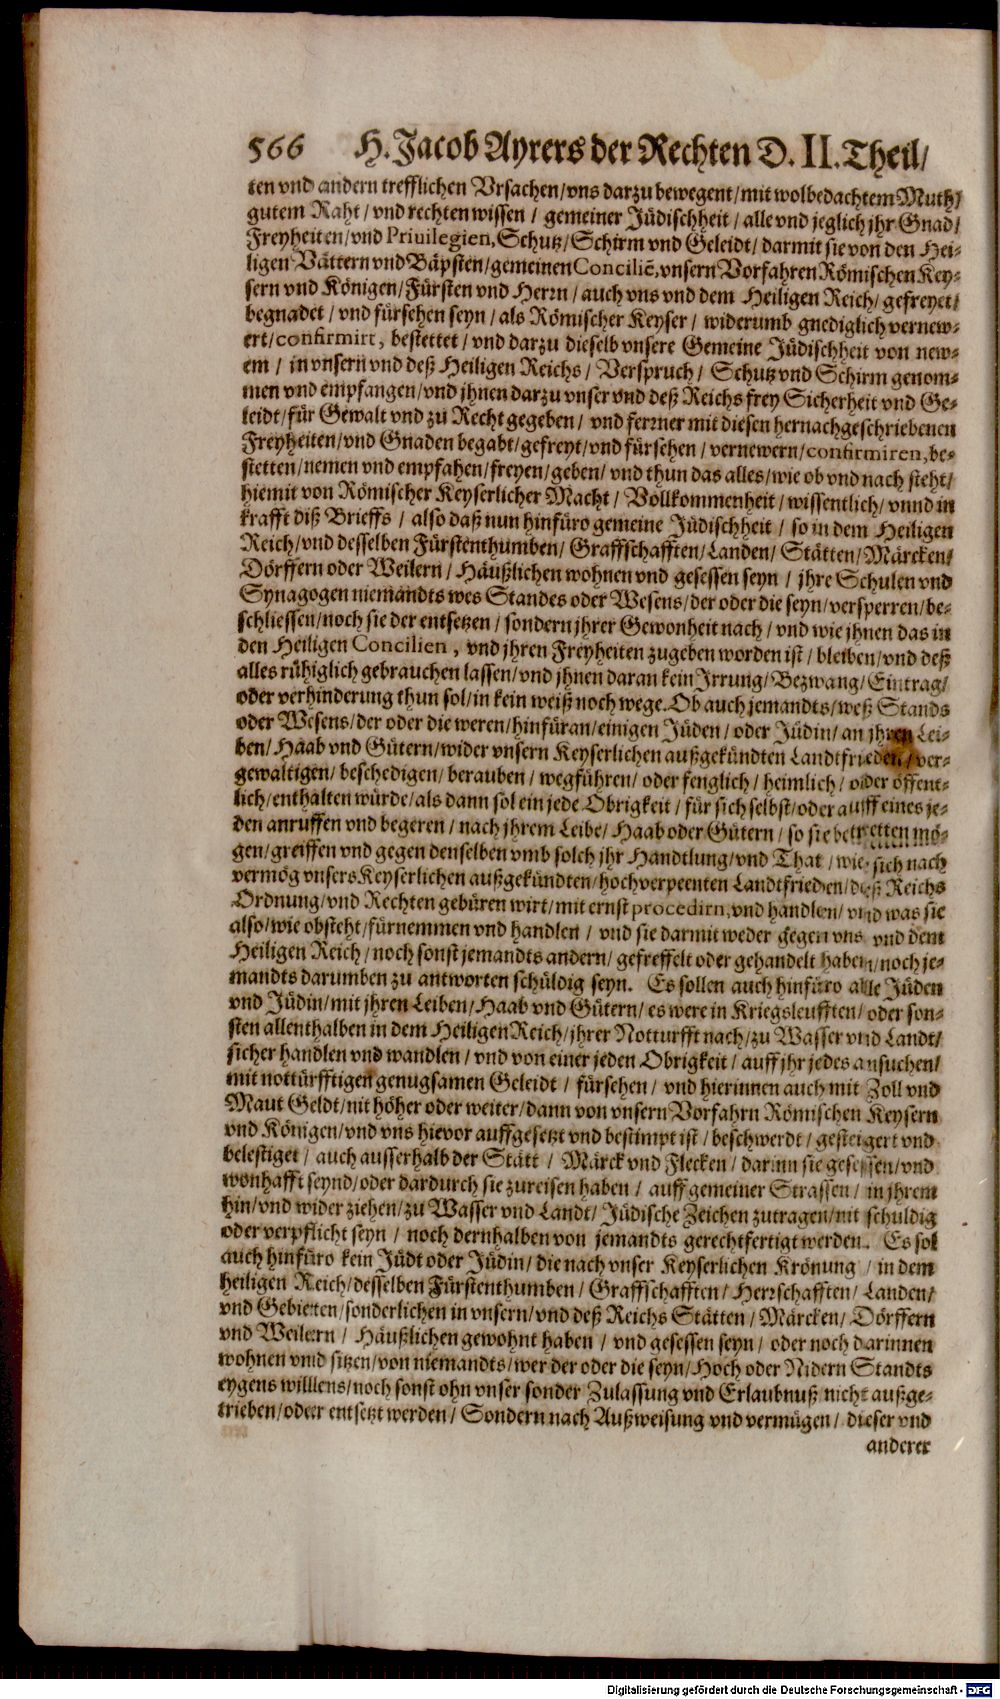 566 H. Jacob Ayrers der Rechten D. II. Theil/
ten vnd andern trefflichen Vrsachen/ vns darzu bewegent/ mit wolbedachtem Muth/
gutem Raht/ vnd rechten wissen/ gemeiner Jüdischheit/ alle vnd jeglich jhr Gnad/
Freyheiten/ vnd Priuilegien, Schutz/ Schirm vnd Geleidt/ darmit sie von den Hei-
ligen Vättern vnd Bäpsten/ gemeinen Conciliē, vnsern Vorfahren Römischen Key-
sern vnd Königen/ Fürsten vnd Herrn/ auch vns vnd dem Heiligen Reich/ gefreyet/
begnadet/ vnd fürsehen seyn/ als Römischer Keyser/ widerumb gnediglich vernew-
ert/ confirmirt, bestettet/ vnd darzu dieselb vnsere Gemeine Jüdischheit von new-
em/ in vnsern vnd deß Heiligen Reichs/ Verspruch/ Schutz vnd Schirm genom-
men vnd empfangen/ vnd jhnen darzu vnser vnd deß Reichs frey Sicherheit vnd Ge-
leidt/ für Gewalt vnd zu Recht gegeben/ vnd ferrner mit diesen hernachgeschriebenen
Freyheiten/ vnd Gnaden begabt/ gefreyt/ vnd fürsehen/ vernewern/ confirmiren, be-
stetten/ nemen vnd empfahen/ freyen/ geben/ vnd thun das alles/ wie ob vnd nach steht/
hiemit von Römischer Keyserlicher Macht/ Vollkommenheit/ wissentlich/ vnnd in
krafft diß Brieffs/ also daß nun hinfüro gemeine Jüdischheit/ so in dem Heiligen
Reich/ vnd desselben Fürstenthumben/ Graffschafften/ Landen/ Stätten/ Märcken/
Dörffern oder Weilern/ Häußlichen wohnen vnd gesessen seyn/ jhre Schulen vnd
Synagogen niemandts wes Standes oder Wesens/ der oder die seyn/ versperren/ be-
schliessen/ noch sie der entsetzen/ sondern jhrer Gewonheit nach/ vnd wie jhnen das in
den Heiligen Concilien, vnd jhren Freyheiten zugeben worden ist/ bleiben/ vnd deß
alles rühiglich gebrauchen lassen/ vnd jhnen daran kein Irrung/ Bezwang/ Eintrag/
oder verhinderung thun sol/ in kein weiß noch wege. Ob auch jemandts/ weß Stands
oder Wesens/ der oder die weren/ hinfüran/ einigen Jüden/ oder Jüdin/ an jhren Lei-
ben/ Haab vnd Gütern/ wider vnsern Keyserlichen außgekündten Landtfrieden/ ver-
gewaltigen/ beschedigen/ berauben/ wegführen/ oder fenglich/ heimlich/ oder öffent-
lich/ enthalten würde/ als dann sol ein jede Obrigkeit/ für sich selbst/ oder auff eines je-
den anruffen vnd begeren/ nach jhrem Leibe/ Haab oder Gütern/ so sie betretten mö-
gen/ greiffen vnd gegen denselben vmb solch jhr Handtlung/ vnd That/ wie sich nach
vermög vnsers Keyserlichen außgekündten/ hochverpeenten Landtfrieden/ deß Reichs
Ordnung/ vnd Rechten gebüren wirt/ mit ernst procedirn, vnd handlen/ vnd was sie
also/ wie obsteht/ fürnemmen vnd handlen/ vnd sie darmit weder gegen vns vnd dem
Heiligen Reich/ noch sonst jemandts andern/ gefreffelt oder gehandelt haben/ noch je-
mandts darumben zu antworten schüldig seyn. Es sollen auch hinfüro alle Jüden
vnd Jüdin/ mit jhren Leiben/ Haab vnd Gütern/ es were in Kriegsleufften/ oder son-
sten allenthalben in dem Heiligen Reich/ jhrer Notturfft nach/ zu Wasser vnd Landt/
sicher handlen vnd wandlen/ vnd von einer jeden Obrigkeit/ auff jhr jedes ansuchen/
mit nottürfftigen genugsamen Geleidt/ fürsehen/ vnd hierinnen auch mit Zoll vnd
Maut Geldt/ nit höher oder weiter/ dann von vnsern Vorfahrn Römischen Keysern
vnd Königen/ vnd vns hievor auffgesetzt vnd bestimpt ist/ beschwerdt/ gesteigert vnd
belestiget/ auch ausserhalb der Stätt/ Märck vnd Flecken/ darinn sie gesessen/ vnd
wonhafft seynd/ oder dardurch sie zureisen haben/ auff gemeiner Strassen/ in jhrem
hin/ vnd wider ziehen/ zu Wasser vnd Landt/ Jüdische Zeichen zutragen/ nit schuldig
oder verpflicht seyn/ noch dernhalben von jemandts gerechtfertigt werden. Es sol
auch hinfüro kein Jüdt oder Jüdin/ die nach vnser Keyserlichen Krönung/ in dem
heiligen Reich/ desselben Fürstenthumben/ Graffschafften/ Herrschafften/ Landen/
vnd Gebieten/ sonderlichen in vnsern/ vnd deß Reichs Stätten/ Märcken/ Dörffern
vnd Weilern/ Häußlichen gewohnt haben/ vnd gesessen seyn/ oder noch darinnen
wohnen vnd sitzen/ von niemandts/ wer der oder die seyn/ Hoch oder Nidern Standts
eygens willens/ noch sonst ohn vnser sonder Zulassung vnd Erlaubnuß nicht außge-
trieben/ oder entsetzt werden/ Sondern nach Außweisung vnd vermügen/ dieser vnd
anderer
Digitalisierung gefördert durch die Deutsche Forschungsgemeinschaft - DFG